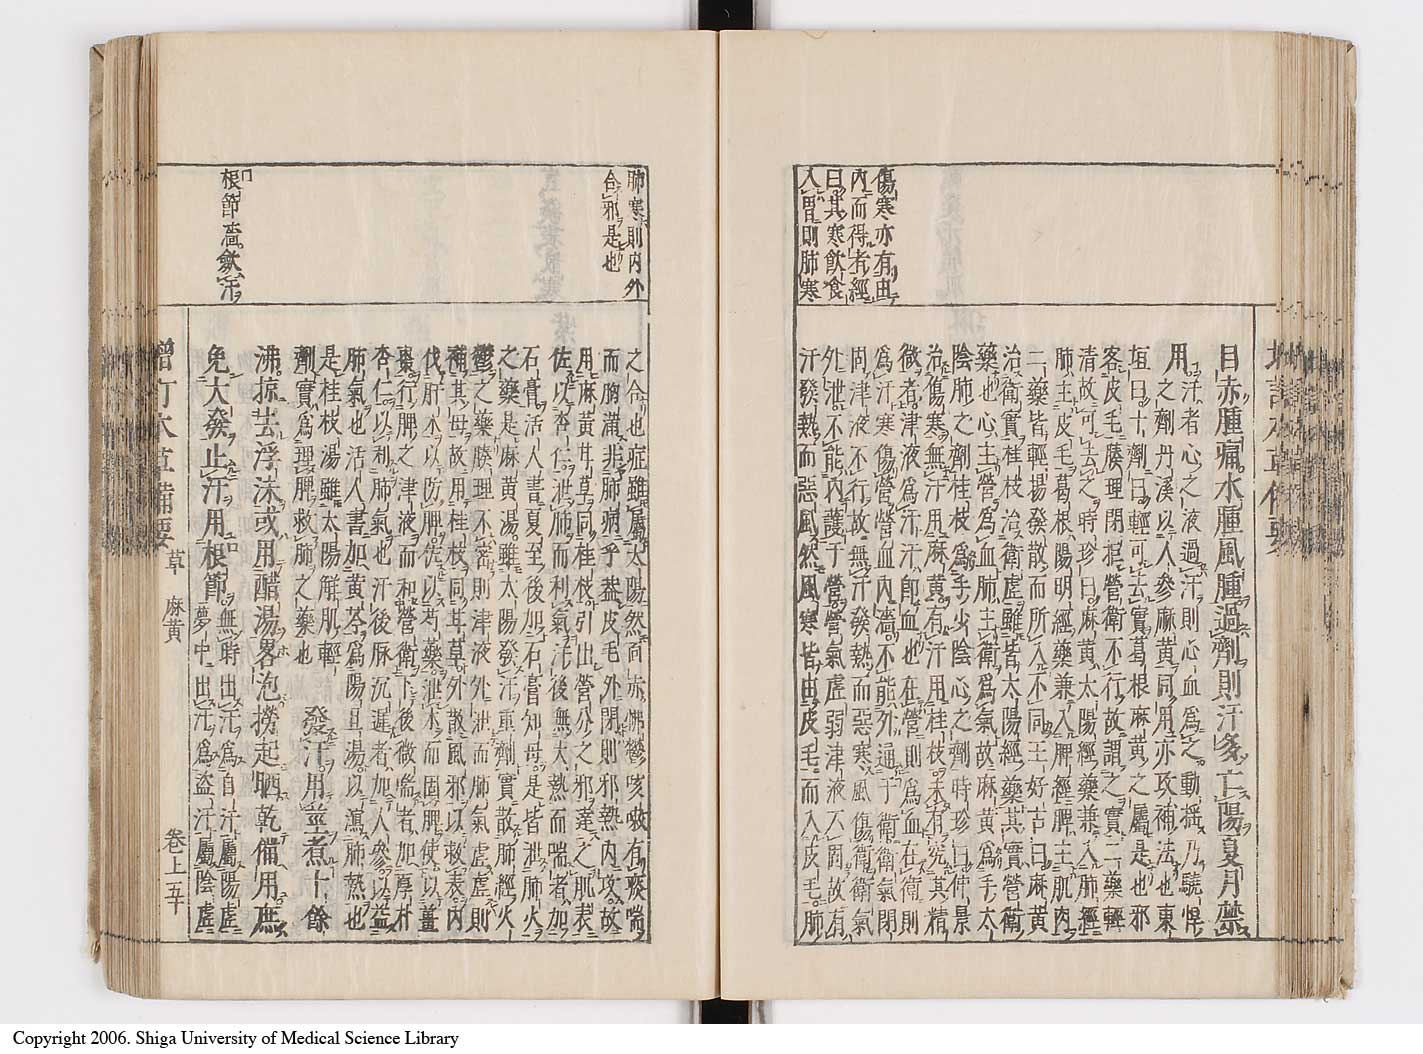 傷寒亦有由
内而得者經
曰其寒飲食
入胃則肺寒
目赤腫痛水腫風腫過劑則汗多亡陽夏月禁
用汗者心之液過汗則心血爲之動搖乃驍悍
之劑丹溪以人參麻黄同用亦攻補法也東
垣曰十劑曰輕可去實葛根麻黄之屬是也邪
客皮毛腠理閉拒營衛不行故謂之實二藥輕
清故可去之時珍曰麻黄太陽經藥兼入肺經
肺主皮毛葛根陽明經藥兼入脾經脾主肌肉
二藥皆輕揚發散而所入不同王好古曰麻黄
治衛實桂枝治衛虚雖皆太陽經藥其實營衛
藥也心主營爲血肺主衛爲氣故麻黄爲手太
陰肺之劑桂枝爲手少陰心之劑時珍曰仲景
治傷寒無汗用麻黄有汗用桂枝未有究其精
微者津液爲汗汗即血也在營則爲血在衛則
爲汗寒傷營營血内濇不能外通于衛衛氣閉
固津液不行故無汗發熱而惡寒風傷衛衛氣
外泄不能内護于營營氣虚弱津液不固故有
汗發熱而惡風然風寒皆由皮毛而入皮毛肺
肺寒則内外
合邪是也
根節濇歛汗
之合也症雖屬太陽然面赤怫鬱咳嗽有痰喘
而胸滿非肺病乎蓋皮毛外閉則邪熱内攻故
用麻黄甘草同桂枝引出營分之邪達之肌表
佐以杏仁泄肺而利氣汗後無大熱而喘者加
石膏活人書夏至後加石膏知母是皆泄肺火
之藥是麻黄湯雖太陽發汗重劑實散肺經火
鬱之藥腠理不密則津液外泄而肺氣虚虚則
補其母故用桂枝同甘草外散風邪以救表内
伐肝木以防脾佐以芍藥泄木而固脾使以薑
棗行脾之津液而和營衛下後微喘者加厚朴
杏仁以利肺氣也汗後脉沉遲者加人參以益
肺氣也活人書加黄芩爲陽旦湯以瀉肺熱也
是桂枝湯雖太陽解肌輕
劑實爲理脾救肺之藥也
發汗用莖煮十餘
沸掠去浮沫或用醋湯畧泡撈起晒乾備用庶
免大發止汗用根節無時出汗爲自汗屬陽虚
夢中出汗爲盗汗屬陰虚
増訂本草備要
草
麻黄
卷上五十